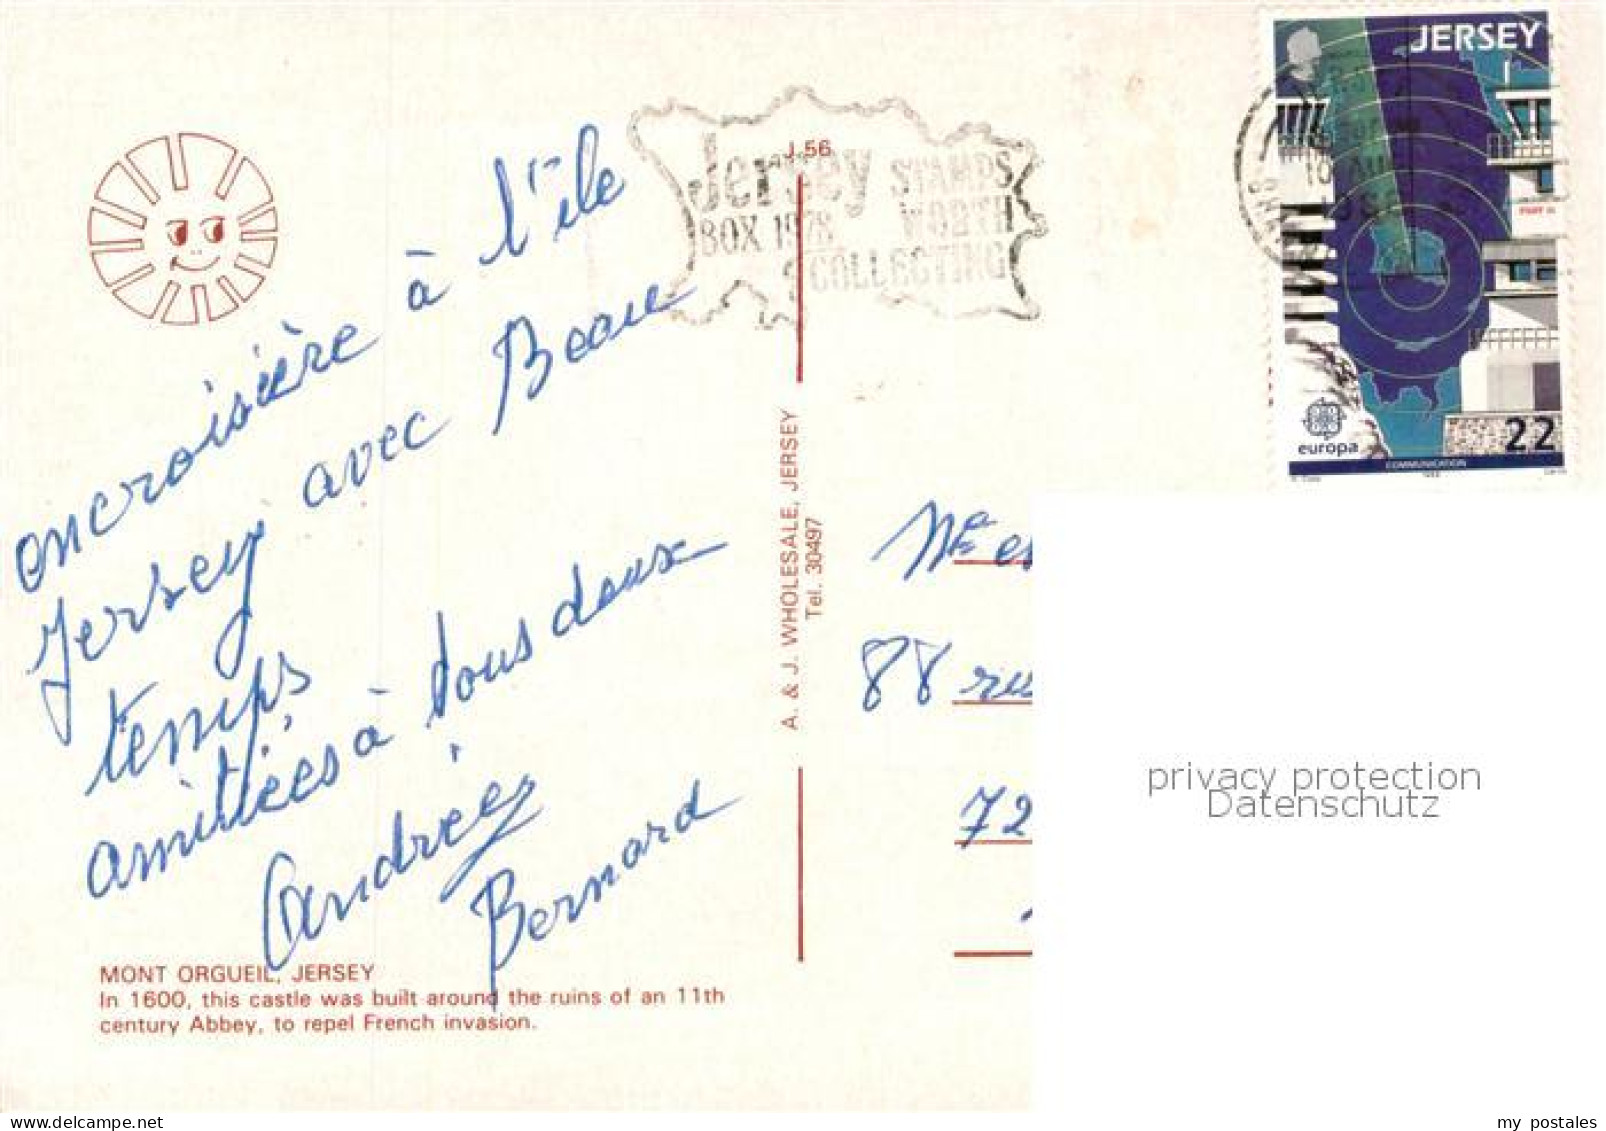 encroisière à l'île
Jersey avec Beau
temps
amitiées à tous deux
Andrée
Bernard
MONT ORGUEIL, JERSEY
In 1600, this castle was built around the ruins of an 11th
century Abbey, to repel French invasion.
J.56
A. & J. WHOLESALE, JERSEY
Tel. 30497
Jersey STAMPS
BOX 1978 WORTH
COLLECTING
10 AU
JERSEY
PART II
europa
22
COMMUNICATION
88 ru
72
privacy protection
Datenschutz
my postales